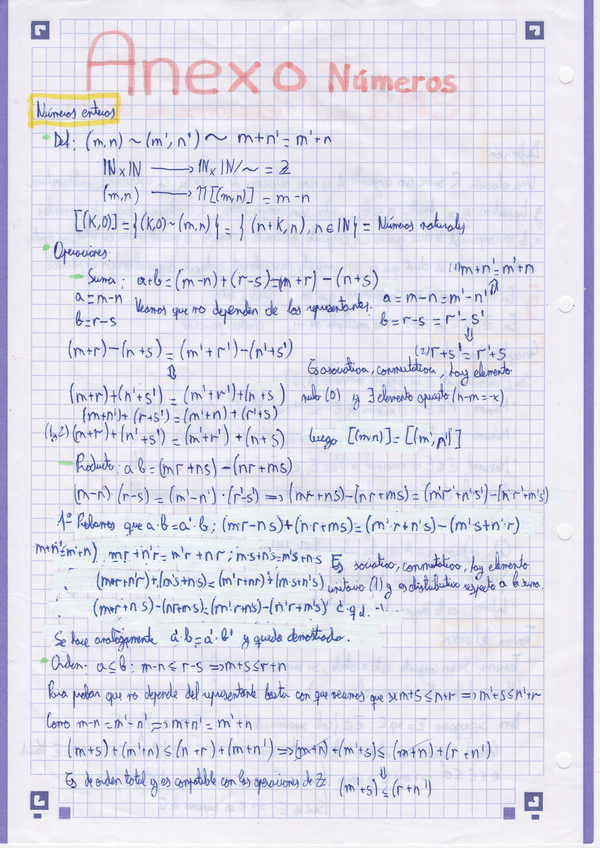 Anexo Números
Números enteros
Def: (m,n) ~ (m',n') ~ m+n'=m'+n
ℕxℕ → ℕxℕ/~ = ℤ
(m,n) → Π[(m,n)] = m-n
[(K,0)] = {(K,0)~(m,n)} = {(n+K,n), n∈ℕ} = Números naturales
Operaciones:
- Suma: a+b=(m-n)+(r-s)=(m+r)-(n+s)
(1) m+n'=m'+n
⇑
a=m-n Veamos que no dependen de los representantes: a=m-n=m'-n'
b=r-s b=r-s=r'-s'
⇓
(m+r)-(n+s)=(m'+r')-(n'+s') (2) r+s'=r'+s
⇕ Es asociativa, conmutativa, hay elemento
(m+r)+(n'+s')=(m'+r')+(n+s) nulo (0) y ∃ elemento opuesto (n-m=-x)
(m+n')+(r+s')=(m'+n)+(r'+s)
(1y2) (m+r)+(n'+s')=(m'+r')+(n+s) luego [(m,n)]=[(m',n')]
- Producto: a b=(mr+ns)-(nr+ms)
(m-n)·(r-s)=(m'-n')·(r'-s') ⟹ (mr+ns)-(nr+ms)=(m'r'+n's')-(n'r'+m's')
1º Probamos que a·b=a'·b; (mr-ns)+(n·r+ms)=(m'·r+n's)-(m's+n'·r)
m+n'=m'+n) mr+n'r=m'r+nr; m's+ns=m's+n·s Es sociativo, conmutativo, hay elemento
(mr+n'r)+(m's+ns)=(m'r+nr)+(m·s+n's) unitario (1) y es distributivo respecto a la suma.
(mr+ns)-(nr+ms)=(m'r+ns)-(n'r+m's) c.q.d.
Se hace analogamente a'·b=a'·b' y queda demostrado.
Orden: a≤b: m-n≤r-s ⟹ m+s≤r+n
Para probar que no depende del representante basta con que veamos que si m+s≤n+r ⟹ m'+s≤n'+r
Como m-n=m'-n' ⟹ m+n'=m'+n
(m+s)+(m'+n)≤(n+r)+(m+n') ⟹ (m+n)+(m'+s)≤(m+n)+(r+n')
⇓
Es de orden total y es compatible con las operaciones de ℤ. (m'+s)≤(r+n')